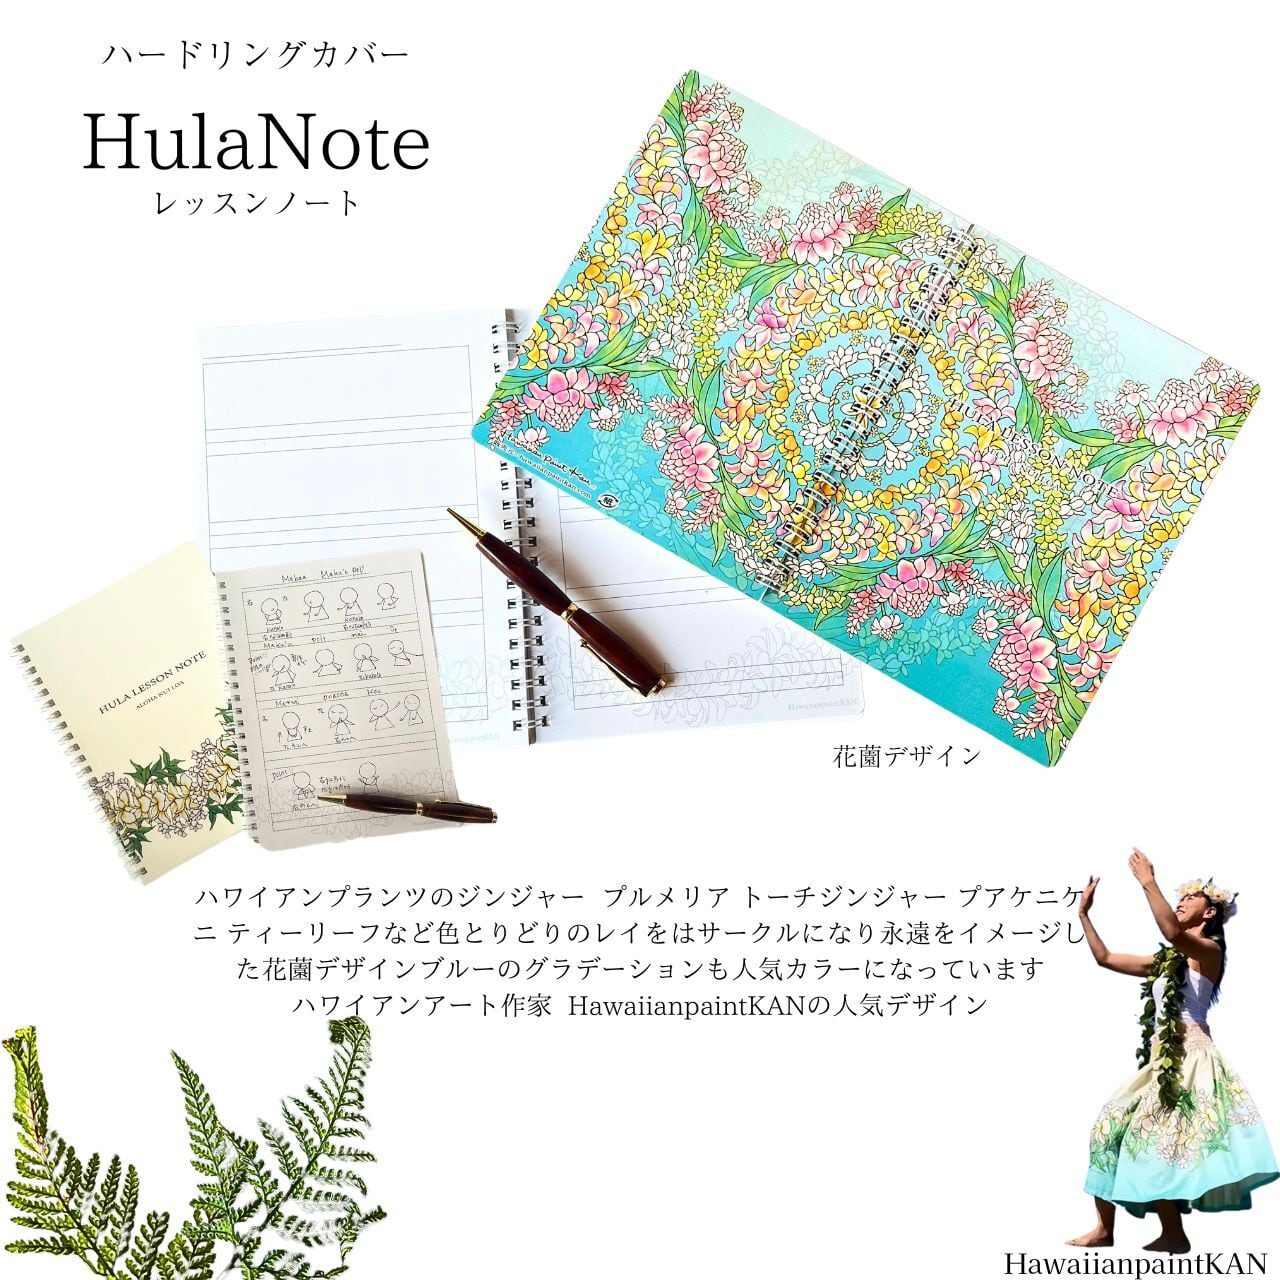 ハードリングカバー
HulaNote
レッスンノート
HULA LESSON NOTE
Hawaiian Paint Kan
hawaiianpaintKAN.com
HULA LESSON NOTE
ALOHA NUI LOA
HawaiianpaintKAN
HawaiianpaintKAN
花薗デザイン
ハワイアンプランツのジンジャー プルメリア トーチジンジャー プアケニケ
ニ ティーリーフなど色とりどりのレイをはサークルになり永遠をイメージし
た花薗デザインブルーのグラデーションも人気カラーになっています
ハワイアンアート作家 HawaiianpaintKANの人気デザイン
HawaiianpaintKAN